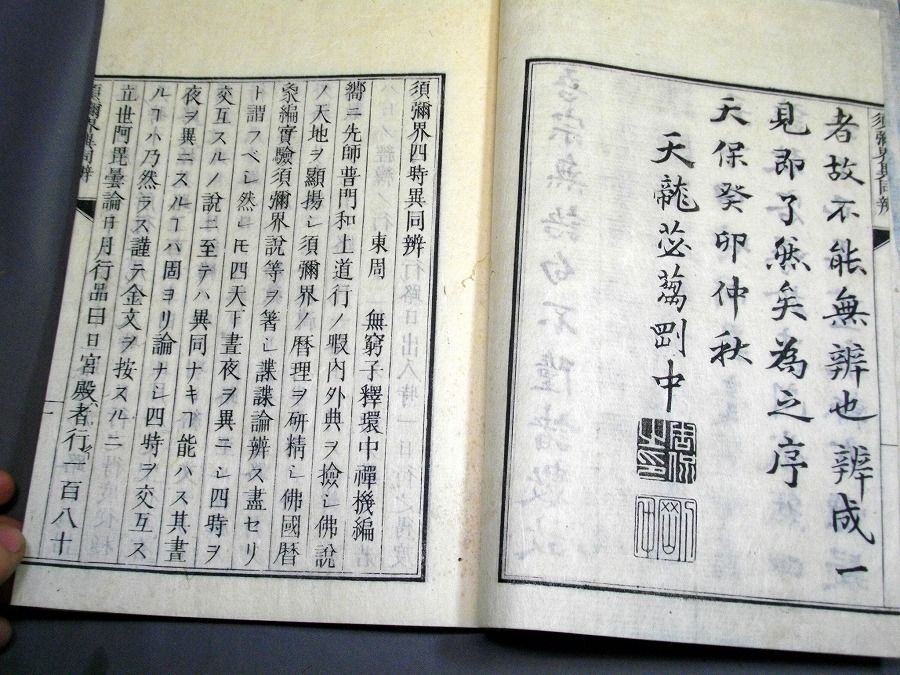 者故不能無辨也辨成一
見即了然矣為之序
天保癸卯仲秋
天龍苾蒭剛中
須彌界四時異同辨
須彌界四時異同辨
東周 無窮子釋環中禪機編
嚮ニ先師普門和上道行ノ暇內外典ヲ撿シ佛說
ノ天地ヲ顯揚シ須彌界ノ曆理ヲ研精シ佛國曆
象編實驗須彌界說等ヲ著シ諜諜論辨ス盡セリ
ト謂フベシ然レモ四天下晝夜ヲ異ニシ四時ヲ
交互スルノ說ニ至テハ異同ナキヿ能ハス其晝
夜ヲ異ニスルヿハ固ヨリ論ナシ四時ヲ交互ス
ルヿハ乃然ラス謹テ金文ヲ按スルニ
立世阿毘曇論日月行品曰日宮殿者行一百八十
須彌界異同辨